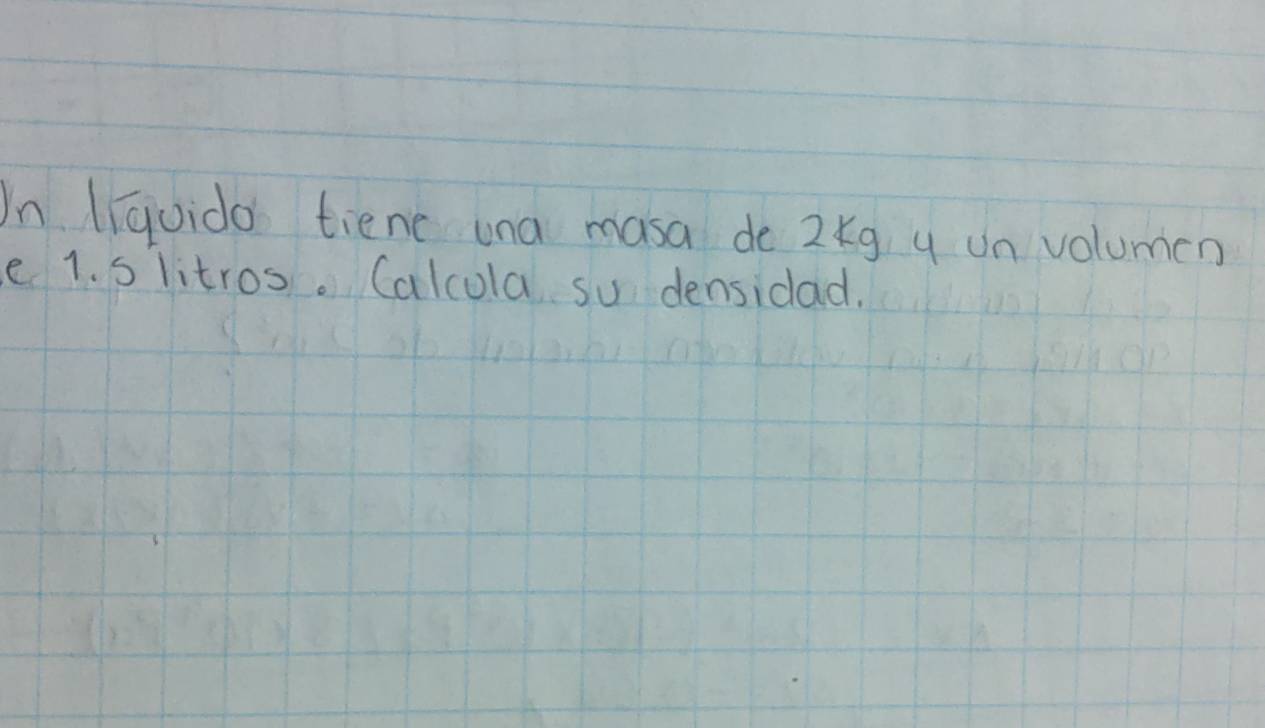 Un líquido tiene una masa de 2kg y un volumen
e 1.5 litros. Calcula su densidad.